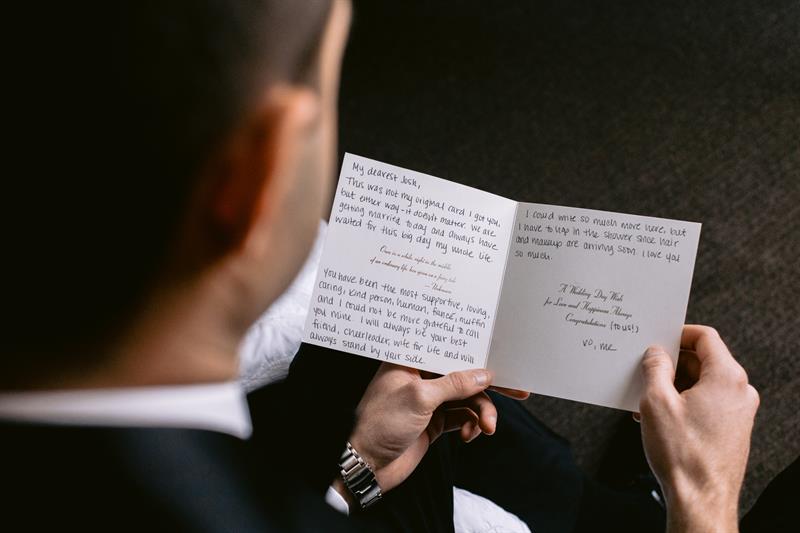 My dearest Josh,
This was not my original card I got you,
but either way - it doesn't matter. We are
getting married today and always have
waited for this big day my whole life.
Once in a while, right in the middle
of an ordinary life, love gives us a fairy tale.
— Unknown
You have been the most supportive, loving,
caring, kind person, human, fiancé, muffin
and I could not be more grateful to call
you mine. I will always be your best
friend, cheerleader, wife for life and will
always stand by your side.
I could write so much more here, but
I have to hop in the shower since hair
and makeup are arriving soon. I love you
so much.
A Wedding Day Wish
for Love and Happiness Always
Congratulations (to us!)
xo, me